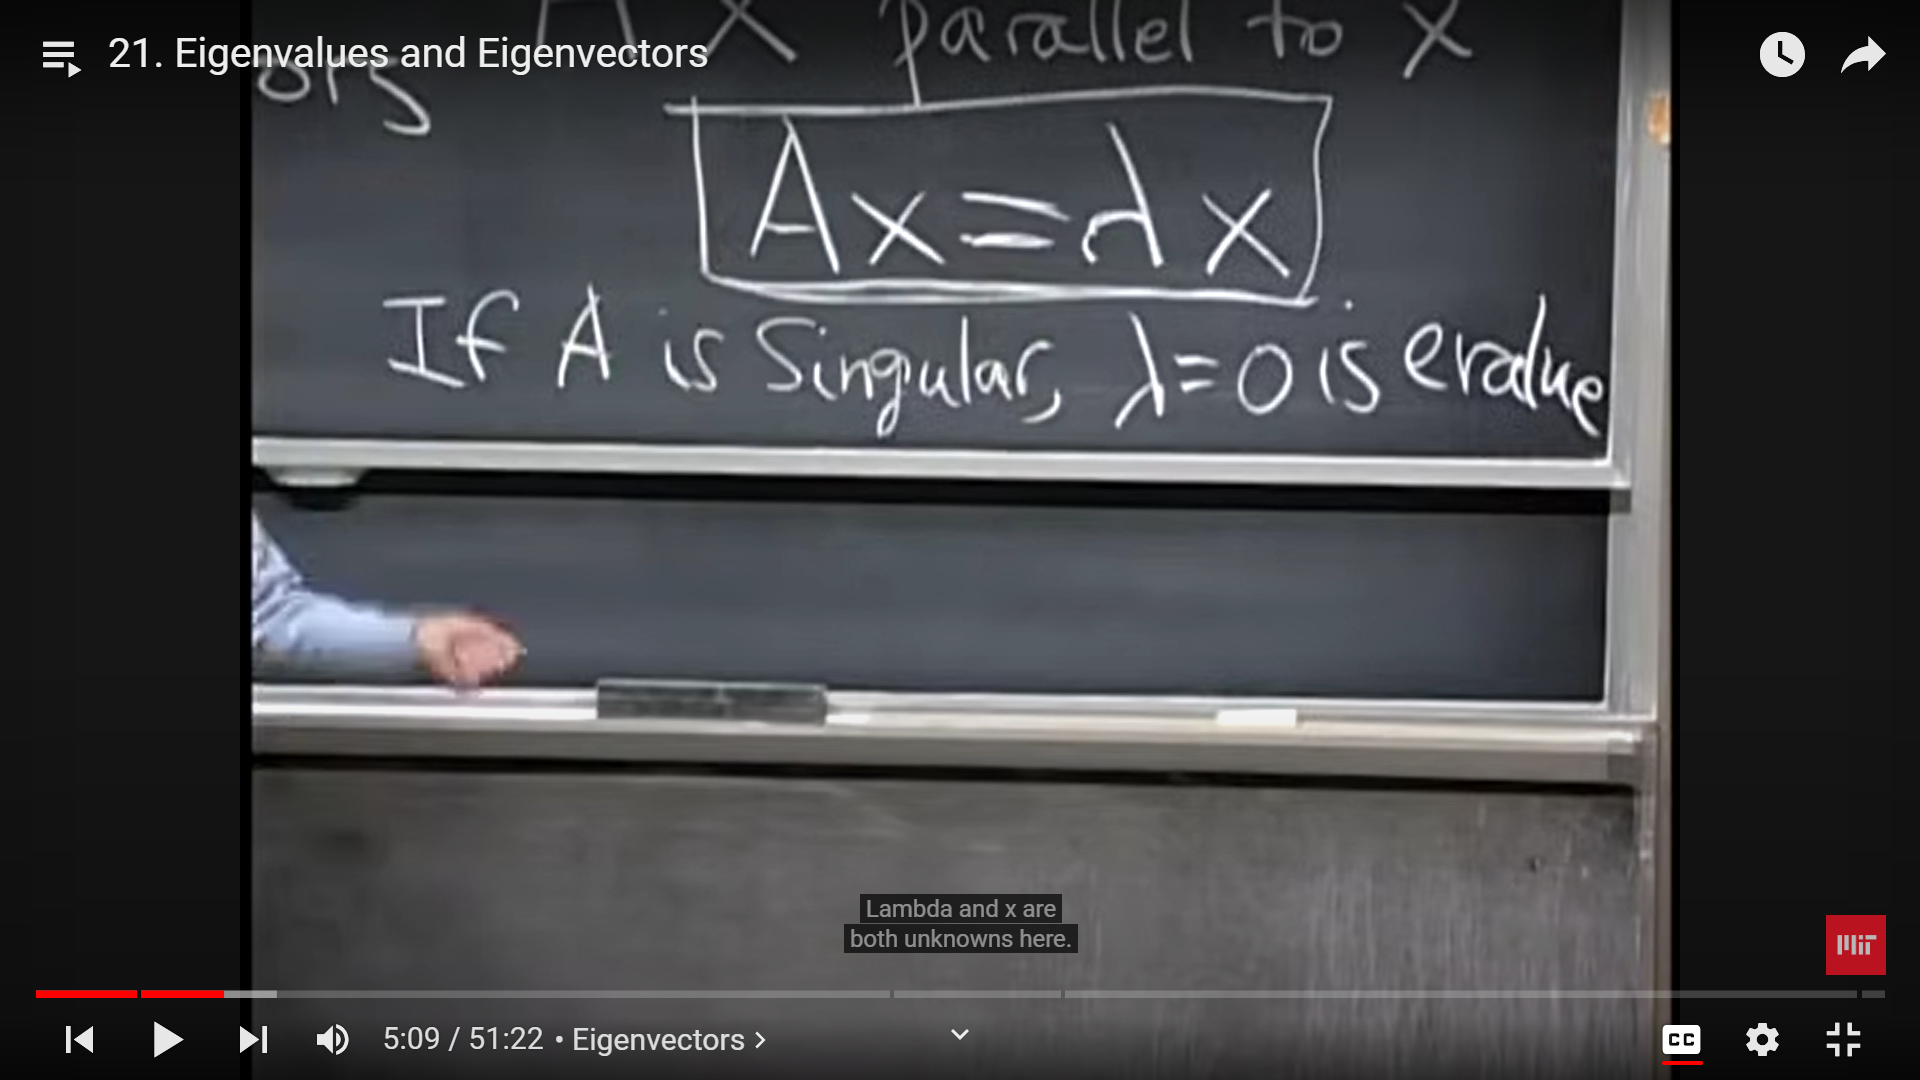 21. Eigenvalues and Eigenvectors
A x parallel to x
ors
Ax=λx
If A is Singular, λ=0 is evalue
Lambda and x are
both unknowns here.
MIT
5:09 / 51:22 • Eigenvectors >
CC